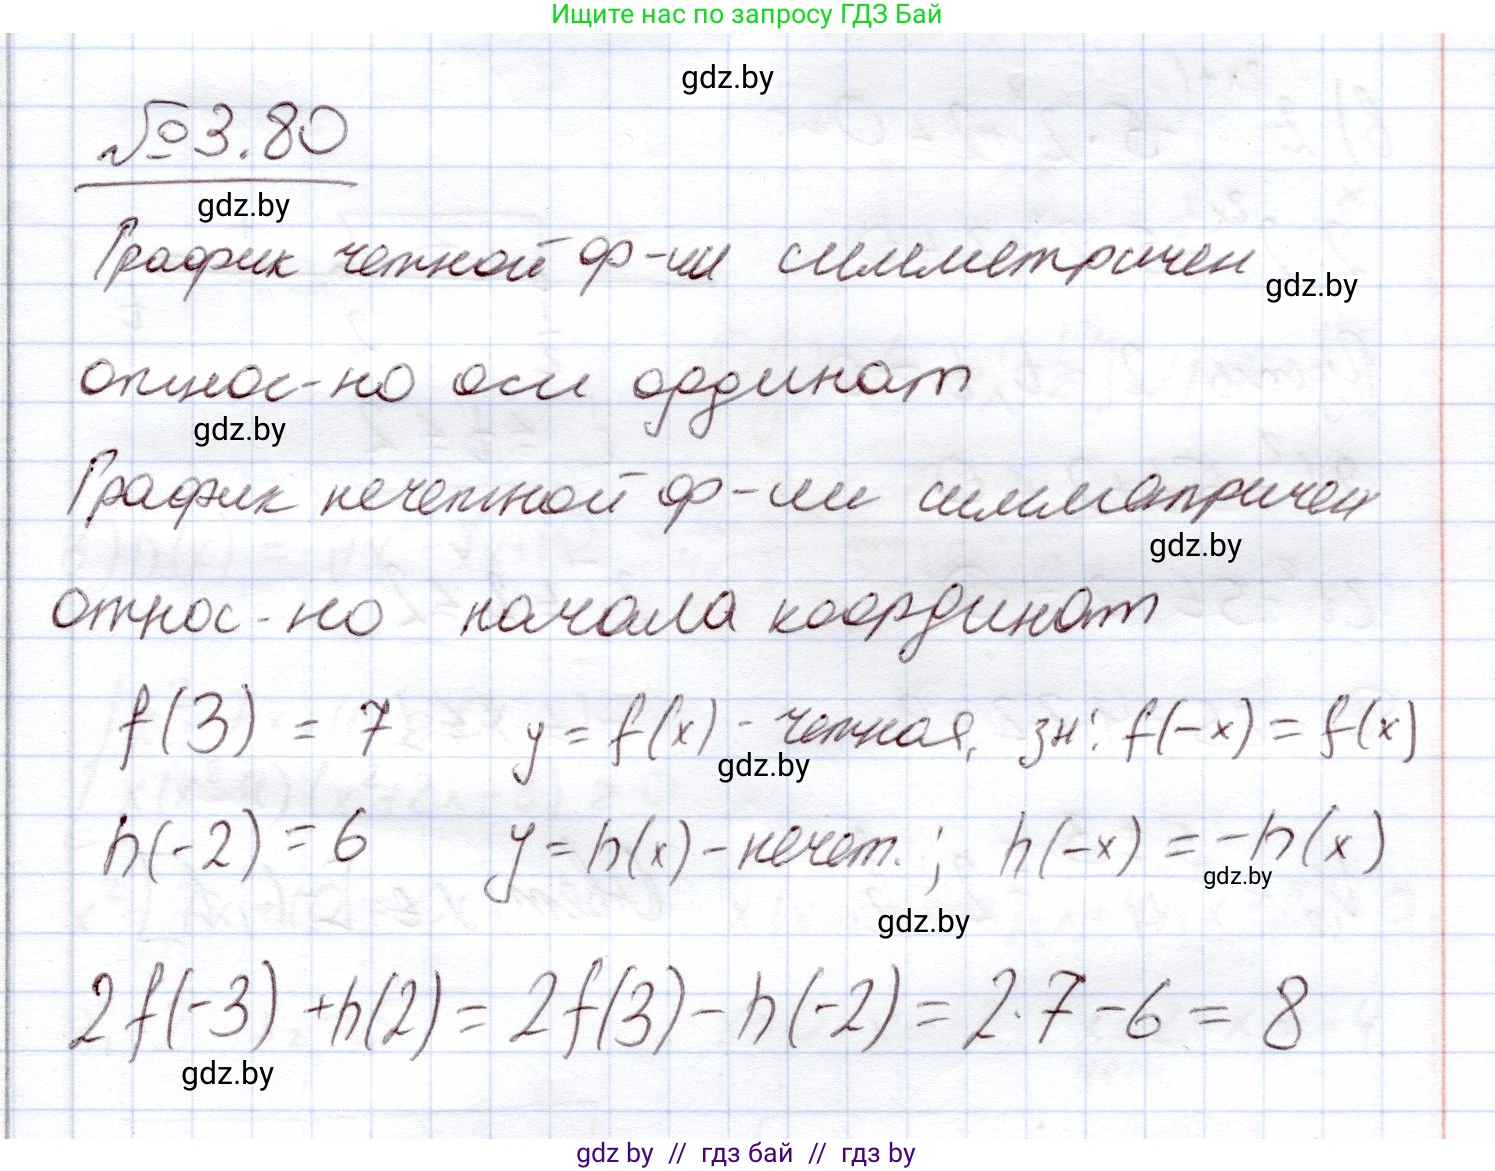 Ищите нас по запросу ГДЗ Бай
gdz.by
№3.80
gdz.by
График четной ф-ии симметричен
gdz.by
относ-но оси ординат
gdz.by
График нечетной ф-ии симметричен
gdz.by
относ-но начала координат
f(3) = 7 y = f(x) - четная, зн: f(-x) = f(x)
gdz.by
h(-2) = 6 y = h(x) - нечет.; h(-x) = -h(x)
gdz.by
gdz.by
2f(-3) + h(2) = 2f(3) - h(-2) = 2·7 - 6 = 8
gdz.by
gdz by // гдз бай // гдз by